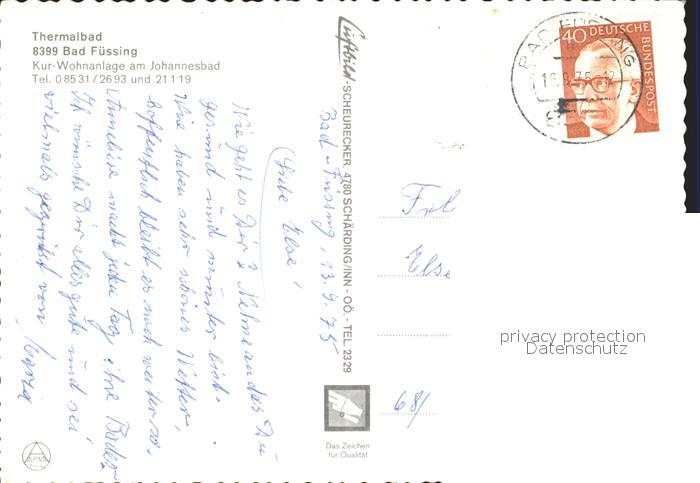 Thermalbad
8399 Bad Füssing
Kur-Wohnanlage am Johannesbad
Tel. 08531/2693 und 21119
Luftbild-SCHEURECKER, 4780 SCHÄRDING/INN - OÖ. - TEL 2329
Bad-Füssing, 13.9.75
Liebe Else!
Wie geht es Dir? Nehme an das Du
gesund und munter bist.
Wir haben sehr schönes Wetter,
hoffentlich bleibt es noch weiter so.
Anneliese macht jeden Tag ihre Bäder
Ich wünsche Dir alles gute und sei
vielmals gegrüßt von
40 DEUTSCHE BUNDESPOST
BAD FÜSSING
Frl
Else
68/
privacy protection
Datenschutz
Das Zeichen
für Qualität
ALPINA